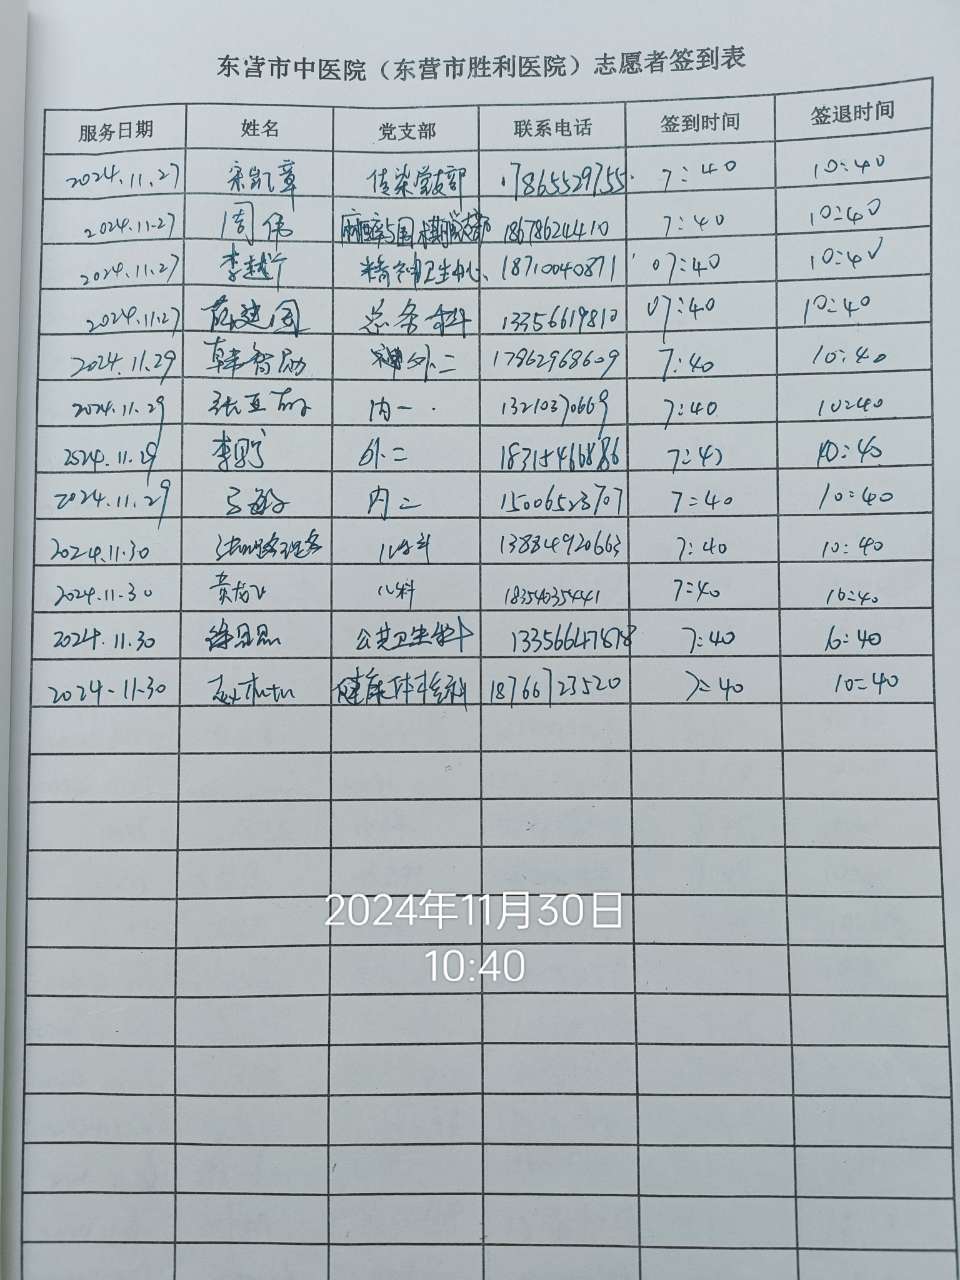 东营市中医院（东营市胜利医院）志愿者签到表
服务日期 姓名 党支部 联系电话 签到时间 签退时间
2024.11.27 宋凯章 传染党支部 17865529755 7:40 10:40
2024.11.27 周伟 18678624410 7:40 10:40
2024.11.27 李越 精神卫生中心 18710040871 07:40 10:40
2024.11.27 建国 总务科 13356619810 07:40 10:40
2024.11.29 韩智勋 神外二 17862968609 7:40 10:40
2024.11.29 张亚 内一 13210370669 7:40 10:40
2024.11.29 李 外二 18315466886 7:40 10:40
2024.11.29 敏 内二 15006523707 7:40 10:40
2024.11.30 儿科 13884920663 7:40 10:40
2024.11.30 黄龙飞 儿科 18354635441 7:40 10:40
2024.11.30 徐思思 公共卫生科 13356647878 7:40 10:40
2024-11-30 赵 健康体检科 18766723520 7:40 10:40
2024年11月30日
10:40